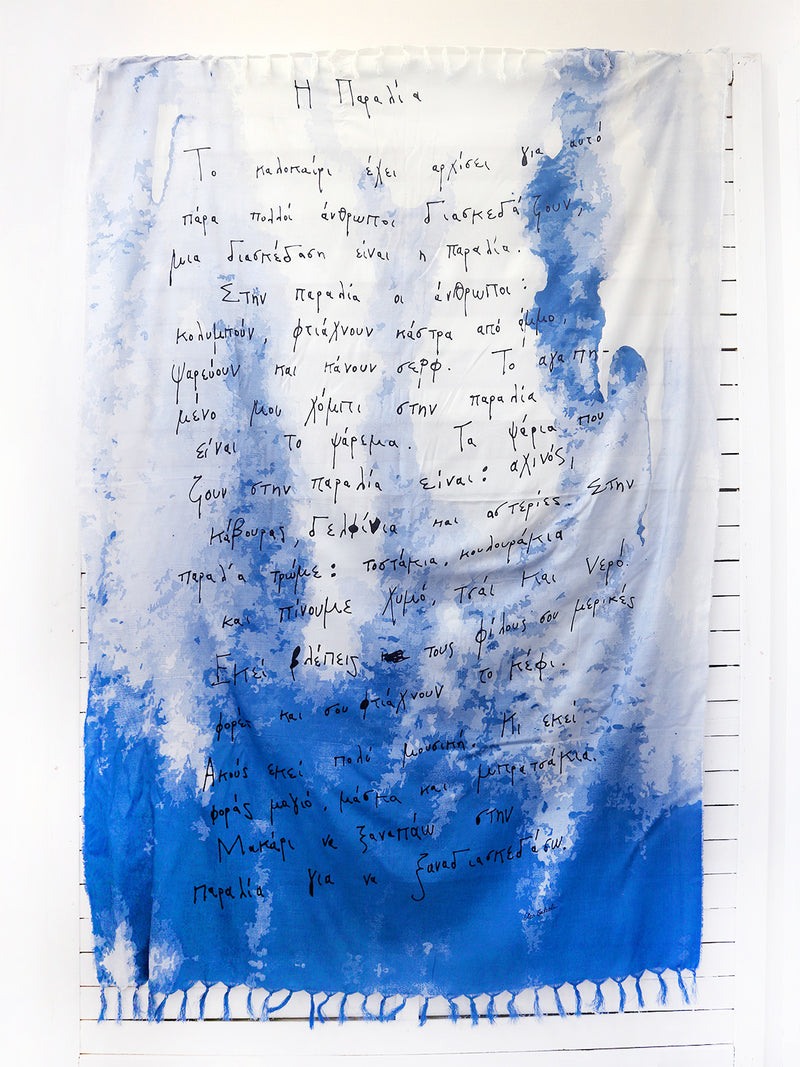 Η Παραλία
Το καλοκαίρι έχει αρχίσει για αυτό
πάρα πολλοί άνθρωποι διασκεδάζουν,
μια διασκέδαση είναι η παραλία.
Στην παραλία οι άνθρωποι:
κολυμπούν, φτιάχνουν κάστρα από άμμο,
ψαρεύουν και κάνουν σερφ. Το αγαπη-
μένο μου χόμπι στην παραλία
είναι το ψάρεμα. Τα ψάρια που
ζουν στην παραλία είναι: αχινός,
κάβουρας, δελφίνια και αστερίες. Στην
παραλία τρώμε: τοστάκια, κουλουράκια
και πίνουμε χυμό, τσάι και νερό!
Εκεί βλέπεις τους φίλους σου μερικές
φορές και σου φτιάχνουν το κέφι.
Ακούς εκεί πολύ μουσική. Κι εκεί
φοράς μαγιό, μάσκα και μπρατσάκια.
Μακάρι να ξαναπάω στην
παραλία για να ξαναδιασκεδάσω.